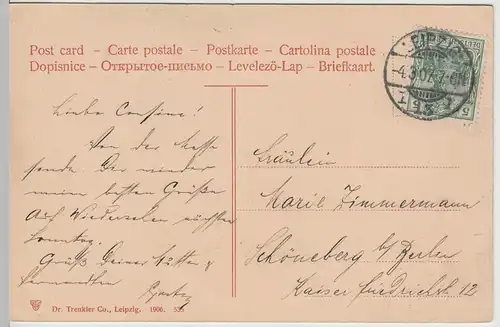 Post card – Carte postale – Postkarte – Cartolina postale
Dopisnice – Открытое-письмо – Levelező-Lap – Briefkaart.
LEIPZIG
-4.3.07. 7-8N
5
Liebe Cousine!
Von der Messe
sende Dir wieder
meine besten Grüße
Auf Wiedersehen nächsten
Sonntag.
Gruß Deiner Mutter &
Verwandten
Fräulein
Marie Zimmermann
Schöneberg b/ Berlin
Kaiser Friedrichst 12
Dr. Trenkler Co., Leipzig. 1906.